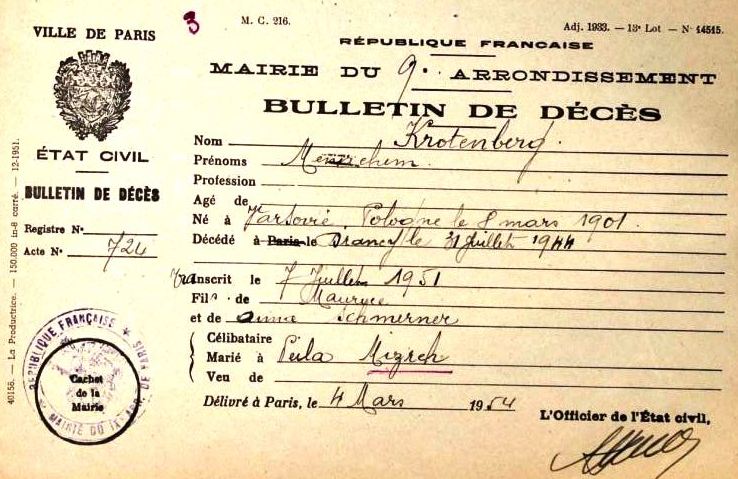 3
M. C. 216.
Adj. 1933. — 13e Lot — N° 14515.
VILLE DE PARIS
ÉTAT CIVIL
BULLETIN DE DÉCÈS
Registre N°
Acte N° 724
40156. — La Productrice. — 150.000 in-8 carré. — 12-1951.
RÉPUBLIQUE FRANÇAISE
MAIRIE DU 9e ARRONDISSEMENT
BULLETIN DE DÉCÈS
Nom Krotenberg
Prénoms
Profession
Agé de
Né à Varsovie, Pologne le 8 mars 1901
Décédé à Paris le Drancy le 31 Juillet 1944
Transcrit le 7 Juillet 1951
Fils de Maurice
et de Anna Schmerner
Célibataire
Marié à Perla Mizrch
Veu de
Délivré à Paris, le 4 Mars 1954
L'Officier de l'État civil,
RÉPUBLIQUE FRANÇAISE
Cachet
de la
Mairie